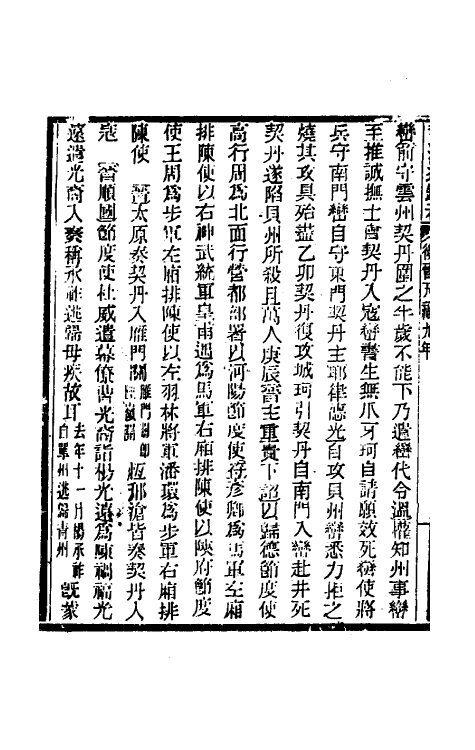 巒前守雲州契丹圍之半歲不能下乃遣巒代令溫權知州事巒
至推誠撫士會契丹入寇巒書生無爪牙珂自請願效死巒使將
兵守南門巒自守東門契丹主耶律德光自攻貝州巒悉力拒之
燒其攻具殆盡乙卯契丹復攻城珂引契丹自南門入巒赴井死
契丹遂陷貝州所殺且萬人庚辰晉主重貴下詔以歸德節度使
高行周為北面行營都部署以河陽節度使符彥卿為馬軍左廂
排陳使以右神武統軍皇甫遇為馬軍右廂排陳使以陝府節度
使王周為步軍左廂排陳使以左羽林將軍潘環為步軍右廂排
陳使 晉太原奏契丹入雁門關 恆邢滄皆奏契丹入
寇 晉順國節度使杜威遣幕僚曹光裔詣楊光遠為陳禍福光
遠遣光裔入奏稱承祚逃歸母疾故耳去年十一月楊承祚自單州逃歸青州既蒙